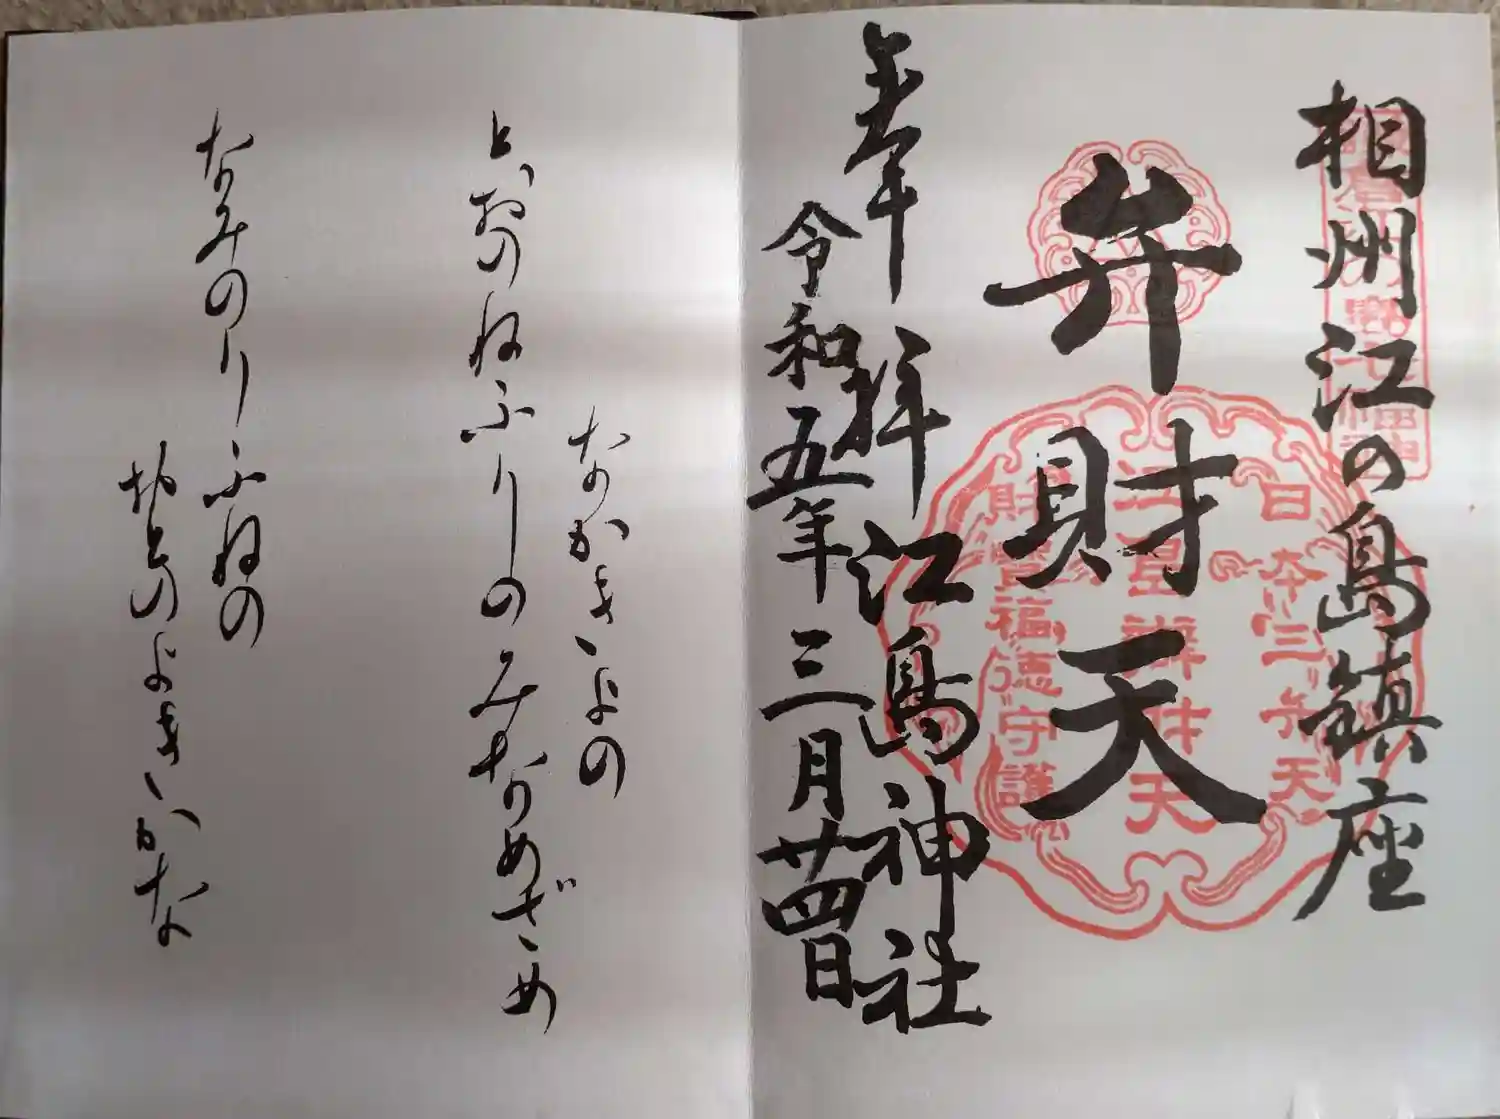 相州江の島鎮座
弁財天
日本三弁天
江島辨財天
財寶福徳守護
奉拝 江島神社
令和五年三月廿四日
なかきよの
とおのねふりのみなめざめ
なみのりふねの
おとのよきかな